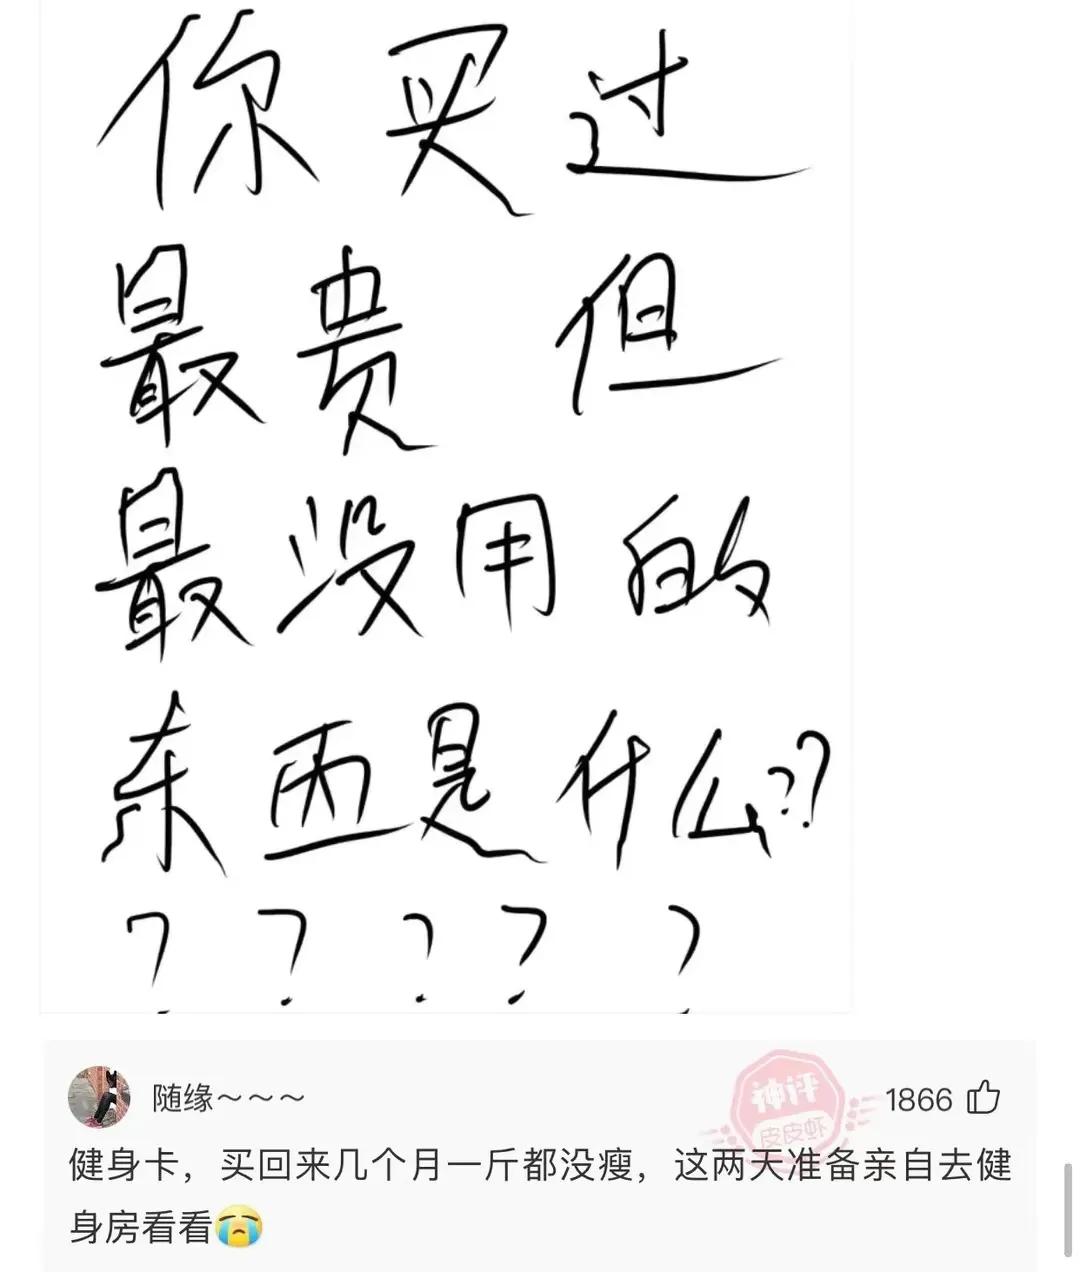 你买过
最贵但
最没用的
东西是什么??
?????
随缘～～～
神评
皮皮虾
1866
健身卡，买回来几个月一斤都没瘦，这两天准备亲自去健
身房看看😭